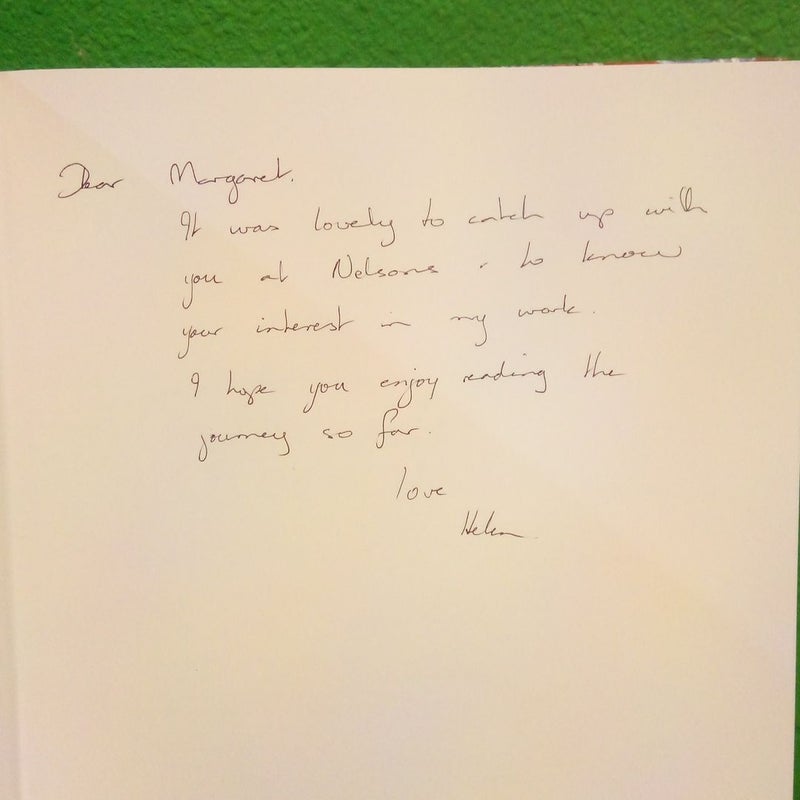 Dear Margaret.
It was lovely to catch up with
you at Nelsons + to know
your interest in my work.
I hope you enjoy reading the
journey so far.
love
Helen